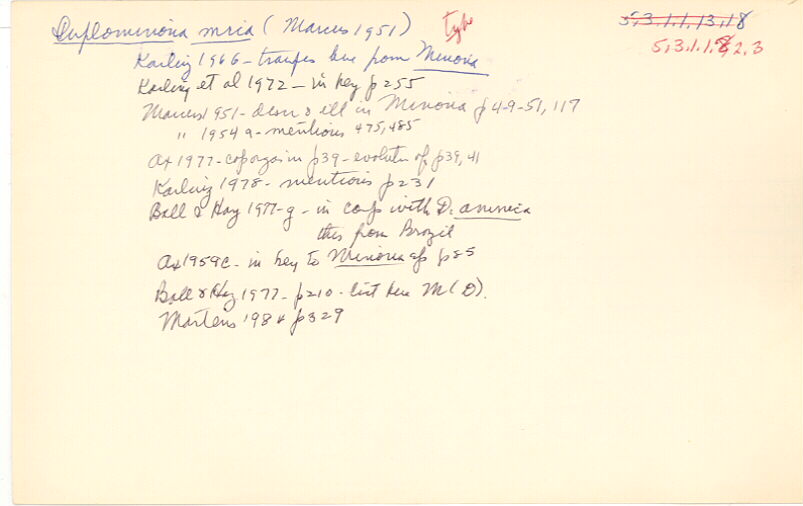 Duplominona mria (Marcus 1951) type 5,3,1,1,13,18
5,3,1,1,8,2,3
Karling 1966 - transfers here from Minona
Karling et al 1972 - in key p 255
Marcus 1951 - descr & ill in Minona p 49-51, 117
" 1954a - mentions 475, 485
Ax 1977 - cop organ in p39 - evolutn of p39, 41
Karling 1978 - mentions p231
Ball & Hay 1977 - g - in comp with D.
this from Brazil
Ax 1959c - in key to Minona p85
Ball & Hay 1977 - p210 - list here M(D).
Martens 1984 p329